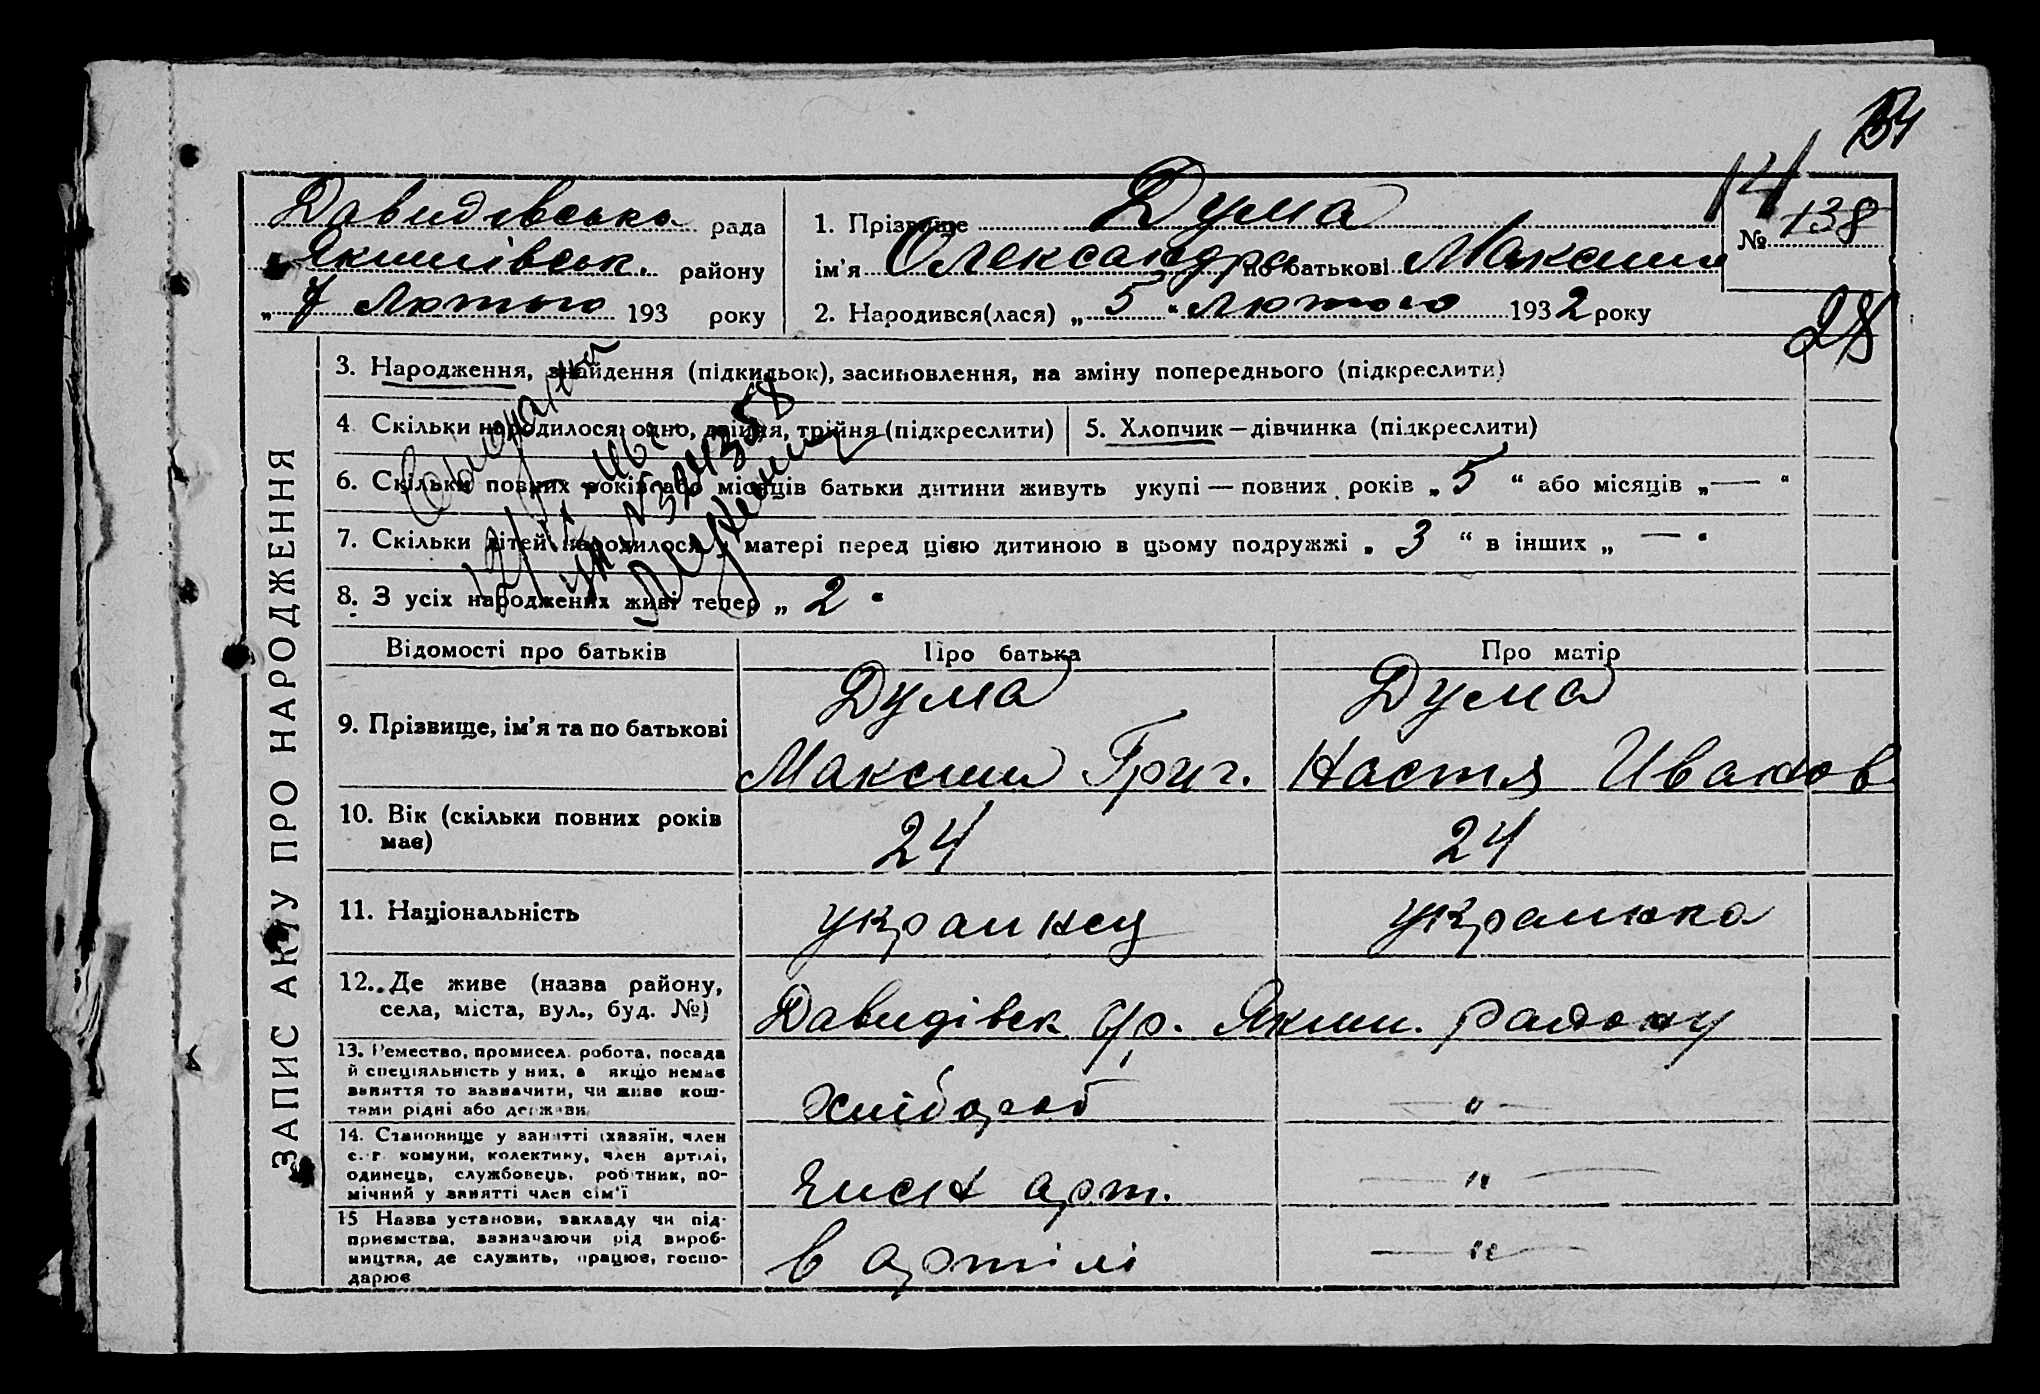 154
Давидівська рада
Якимівськ. району
„ 7 лютого 193 року
1. Прізвище Дума
ім'я Олександр по батькові Максим
2. Народився(лася) „ 5 " лютого 1932 року
14
№ 138
28
ЗАПИС АКТУ ПРО НАРОДЖЕННЯ
3. Народження, знайдення (підкидьок), засиновлення, на зміну попереднього (підкреслити)
4 Скільки народилося: одно, двійня, трійня (підкреслити)
5. Хлопчик — дівчинка (підкреслити)
6. Скільки повних років або місяців батьки дитини живуть укупі — повних років „ 5 " або місяців „ — "
7. Скільки дітей народилося у матері перед цією дитиною в цьому подружжі „ 3 " в інших „ — "
8. З усіх народжених живі тепер „ 2 "
Відомості про батьків
Про батька
Про матір
9. Прізвище, ім'я та по батькові
Дума
Максим Григ.
Дума
Настя Иванов
10. Вік (скільки повних років
має)
24
24
11. Національність
украинец
украинка
12. Де живе (назва району,
села, міста, вул., буд. №)
Давидівск с/р. Яким. району
13. Ремество, промисел, робота, посада
й спеціяльність у них, а якщо немає
заняття то зазначити, чи живе кош-
тами рідні або держави
хлібороб
— " —
14. Становище у занятті (хазяїн, член
с.-г. комуни, колективу, член артілі,
одинець, службовець, робітник, по-
мічний у занятті член сім'ї
член арт.
— " —
15 Назва установи, закладу чи під-
приємства, зазначаючи рід вироб-
ництва, де служить, працює, госпо-
дарює
в артілі
— " —